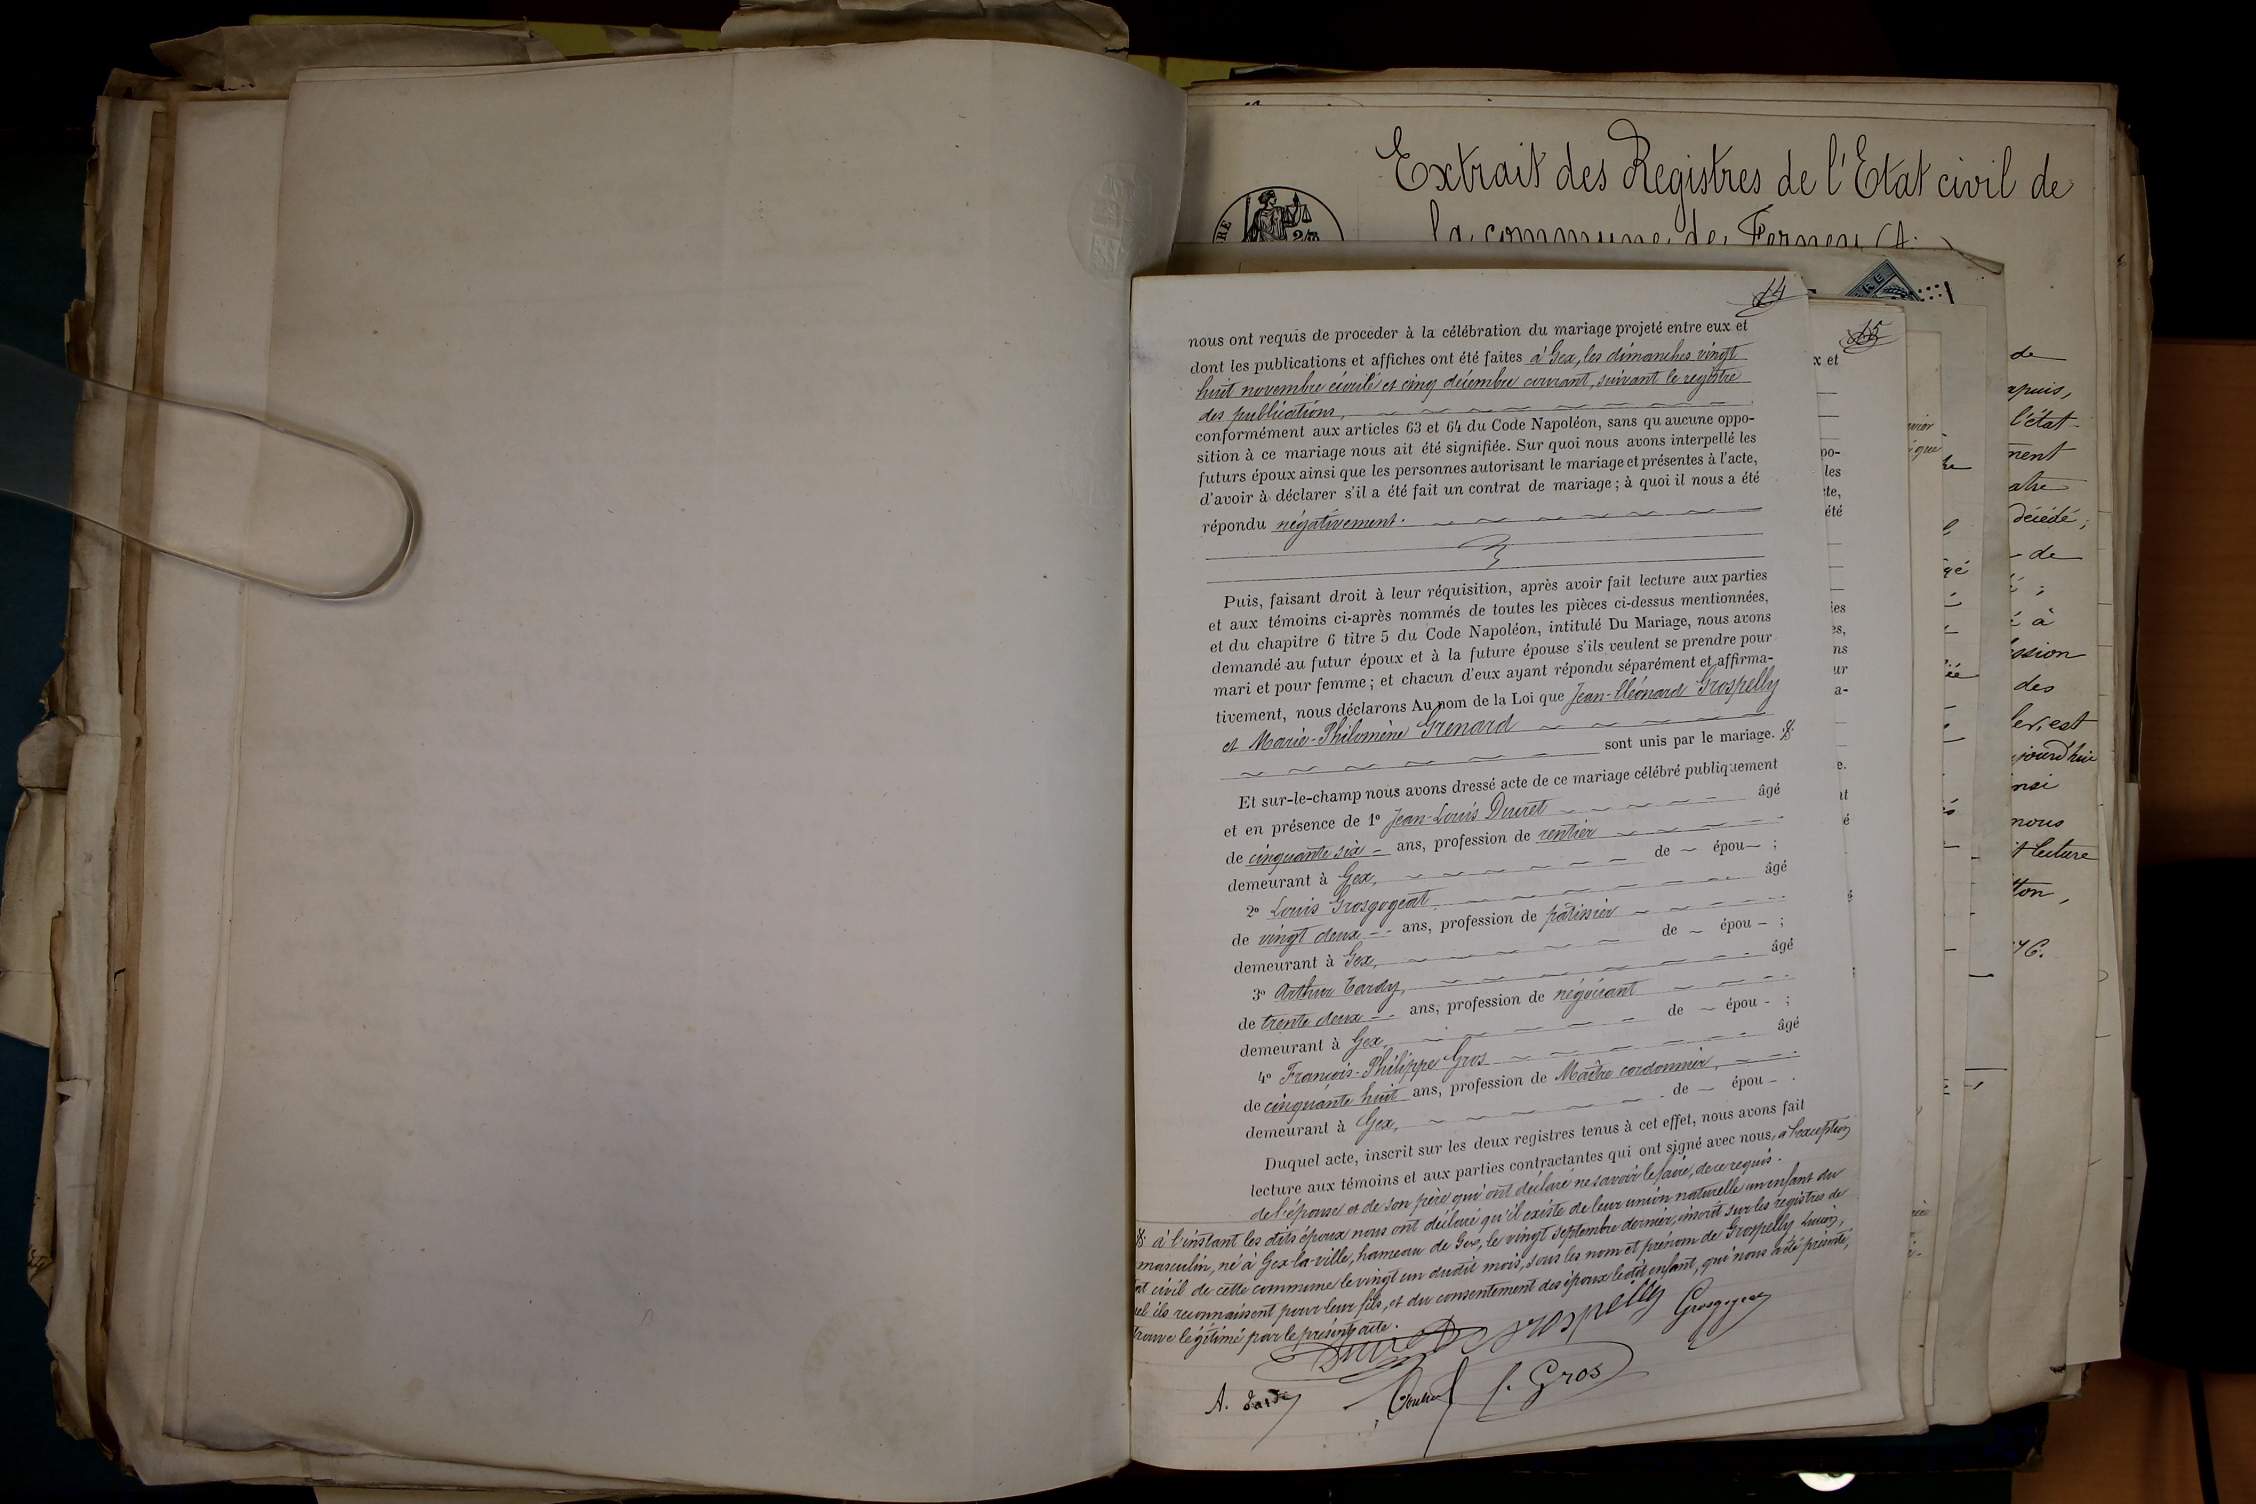 Extrait des Registres de l'Etat civil de
la commune de Ferney (A.
RE
14
nous ont requis de proceder à la célébration du mariage projeté entre eux et
dont les publications et affiches ont été faites à Gex, les dimanches vingt
huit novembre écoulé et cinq décembre courant, suivant le registre
des publications,
conformément aux articles 63 et 64 du Code Napoléon, sans qu'aucune oppo-
sition à ce mariage nous ait été signifiée. Sur quoi nous avons interpellé les
futurs époux ainsi que les personnes autorisant le mariage et présentes à l'acte,
d'avoir à déclarer s'il a été fait un contrat de mariage ; à quoi il nous a été
répondu négativement.
Puis, faisant droit à leur réquisition, après avoir fait lecture aux parties
et aux témoins ci-après nommés de toutes les pièces ci-dessus mentionnées,
et du chapitre 6 titre 5 du Code Napoléon, intitulé Du Mariage, nous avons
demandé au futur époux et à la future épouse s'ils veulent se prendre pour
mari et pour femme ; et chacun d'eux ayant répondu séparément et affirma-
tivement, nous déclarons Au nom de la Loi que Jean-Cléonard Grospelly
et Marie-Philomène Grenard
sont unis par le mariage.
Et sur-le-champ nous avons dressé acte de ce mariage célébré publiquement
et en présence de 1º Jean-Louis Duret âgé
de cinquante six - ans, profession de rentier
demeurant à Gex, de ~ épou— ;
2º Louis Grosgogeat âgé
de vingt deux -- ans, profession de pâtissier
demeurant à Gex, de ~ épou - ;
3º Arthur Tardy, âgé
de trente deux -- ans, profession de négociant
demeurant à Gex, de ~ épou - ;
4º François-Philippe Gros âgé
de cinquante huit ans, profession de Maître cordonnier,
demeurant à Gex, de ~ épou - .
Duquel acte, inscrit sur les deux registres tenus à cet effet, nous avons fait
lecture aux témoins et aux parties contractantes qui ont signé avec nous, à l'exception
de l'épouse et de son père qui ont déclaré ne savoir le faire, de ce requis.
à l'instant les dits époux nous ont déclaré qu'il existe de leur union naturelle un enfant du
masculin, né à Gex-la-ville, hameau de Gex, le vingt septembre dernier, inscrit sur les registres de
at civil de cette commune le vingt un dudit mois, sous les nom et prénom de Grospelly Lucien,
el ils reconnaissent pour leur fils, et du consentement des époux ledit enfant, qui nous a été présenté,
trouve légitimé par le présent acte.
Duret Grospelly Grosgogeat
A. Tardy f. Gros
15
x et
po-
les
cte,
été
ies
es,
ns
ur
a-
e.
nt
é
de
puis,
l'état-
ment
atre
décédé ;
- de
é ;
é à
ession
des
er, est
jourd'hui
insi
nous
t lecture
ton,
76.